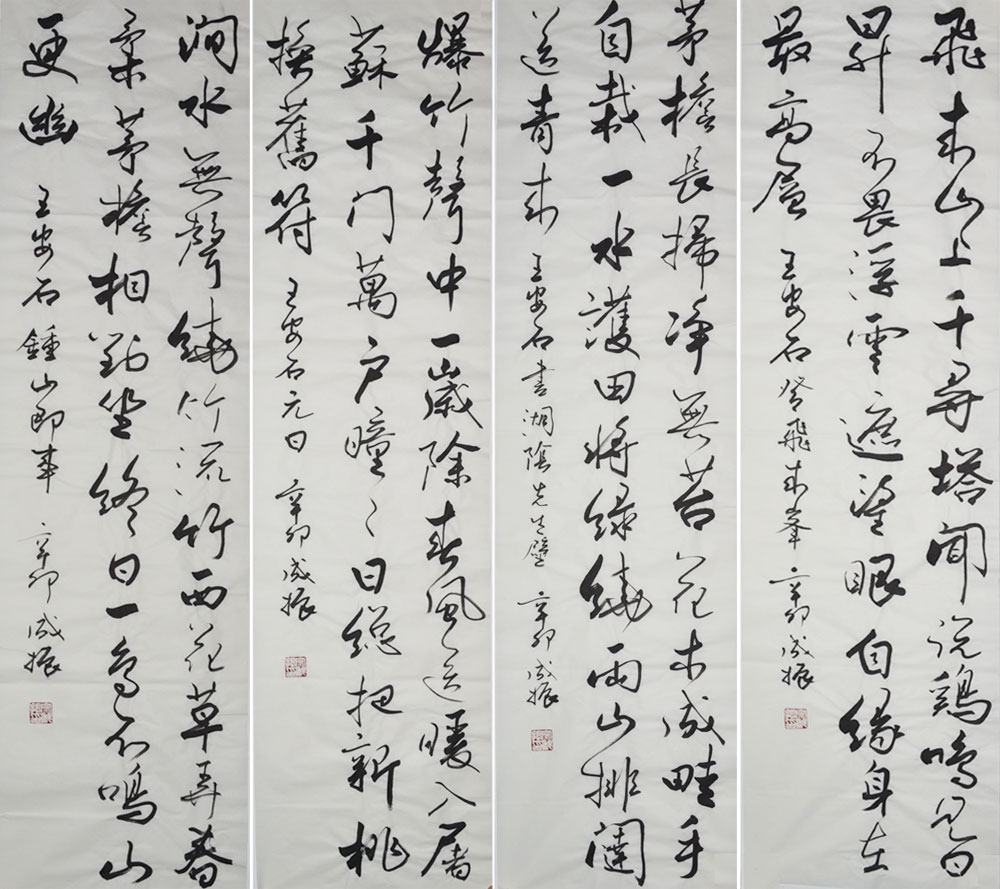 飛来山上千尋塔聞説鷄鳴見日
昇不畏浮雲遮望眼自緣身在
最高層 王安石登飛来峯 辛卯成振
茅檐長掃净無苔花木成畦手
自栽一水護田將綠繞兩山排闥
送青来 王安石書湖陰先生壁 辛卯成振
爆竹聲中一歲除春風送暖入屠
蘇千門萬户曈〻日總把新桃
換舊符 王安石元日 辛卯成振
澗水無聲繞竹流竹西花草弄春
柔茅檐相對坐終日一鳥不鳴山
更幽 王安石鍾山即事 辛卯成振